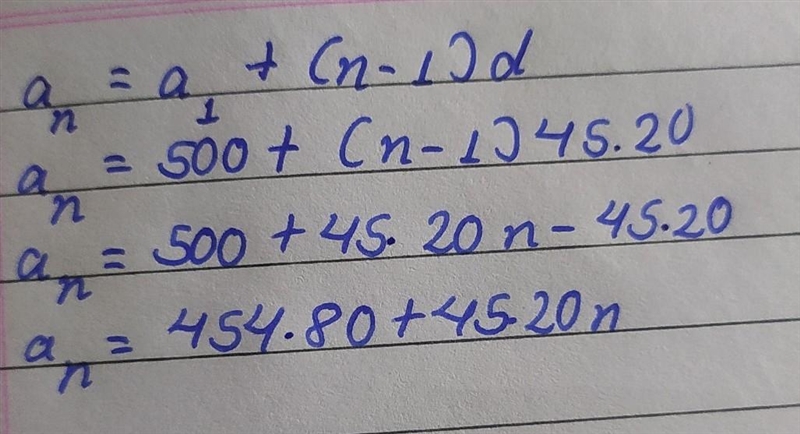 aₙ = a₁ + (n-1)d
aₙ = 500 + (n-1)45.20
aₙ = 500 + 45.20n - 45.20
aₙ = 454.80 + 45.20n